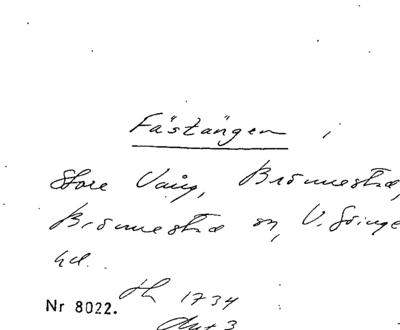 Fästängen i
Store Vång, Brönnestad,
Brönnestad sn, V. Göinge
hd.
Nr 8022. 1734
Akt 3